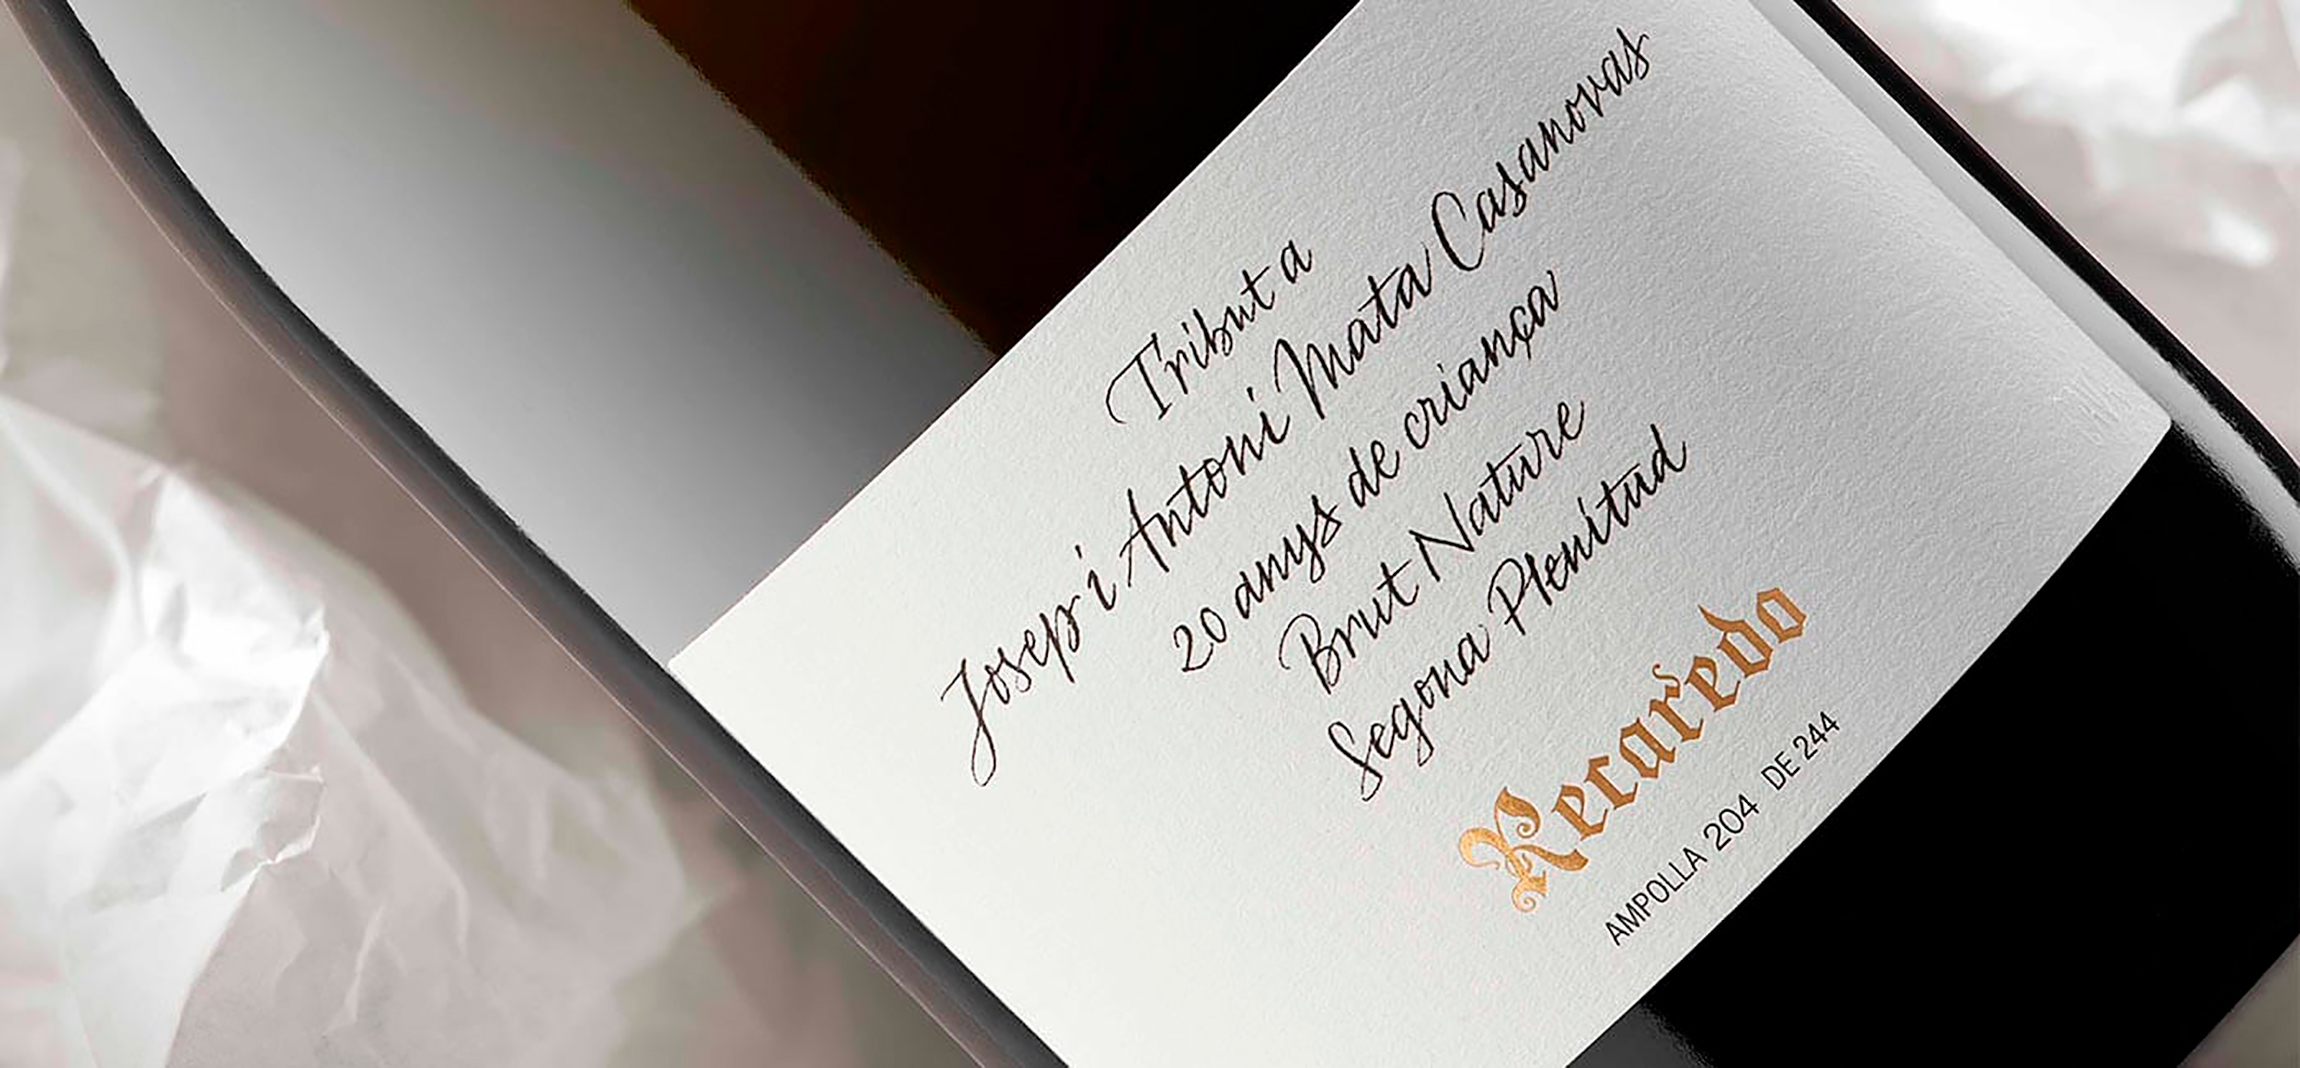 Tribut a
Josep i Antoni Mata Casanovas
20 anys de criança
Brut Nature
Segona Plenitud
Recaredo
AMPOLLA 204 DE 244